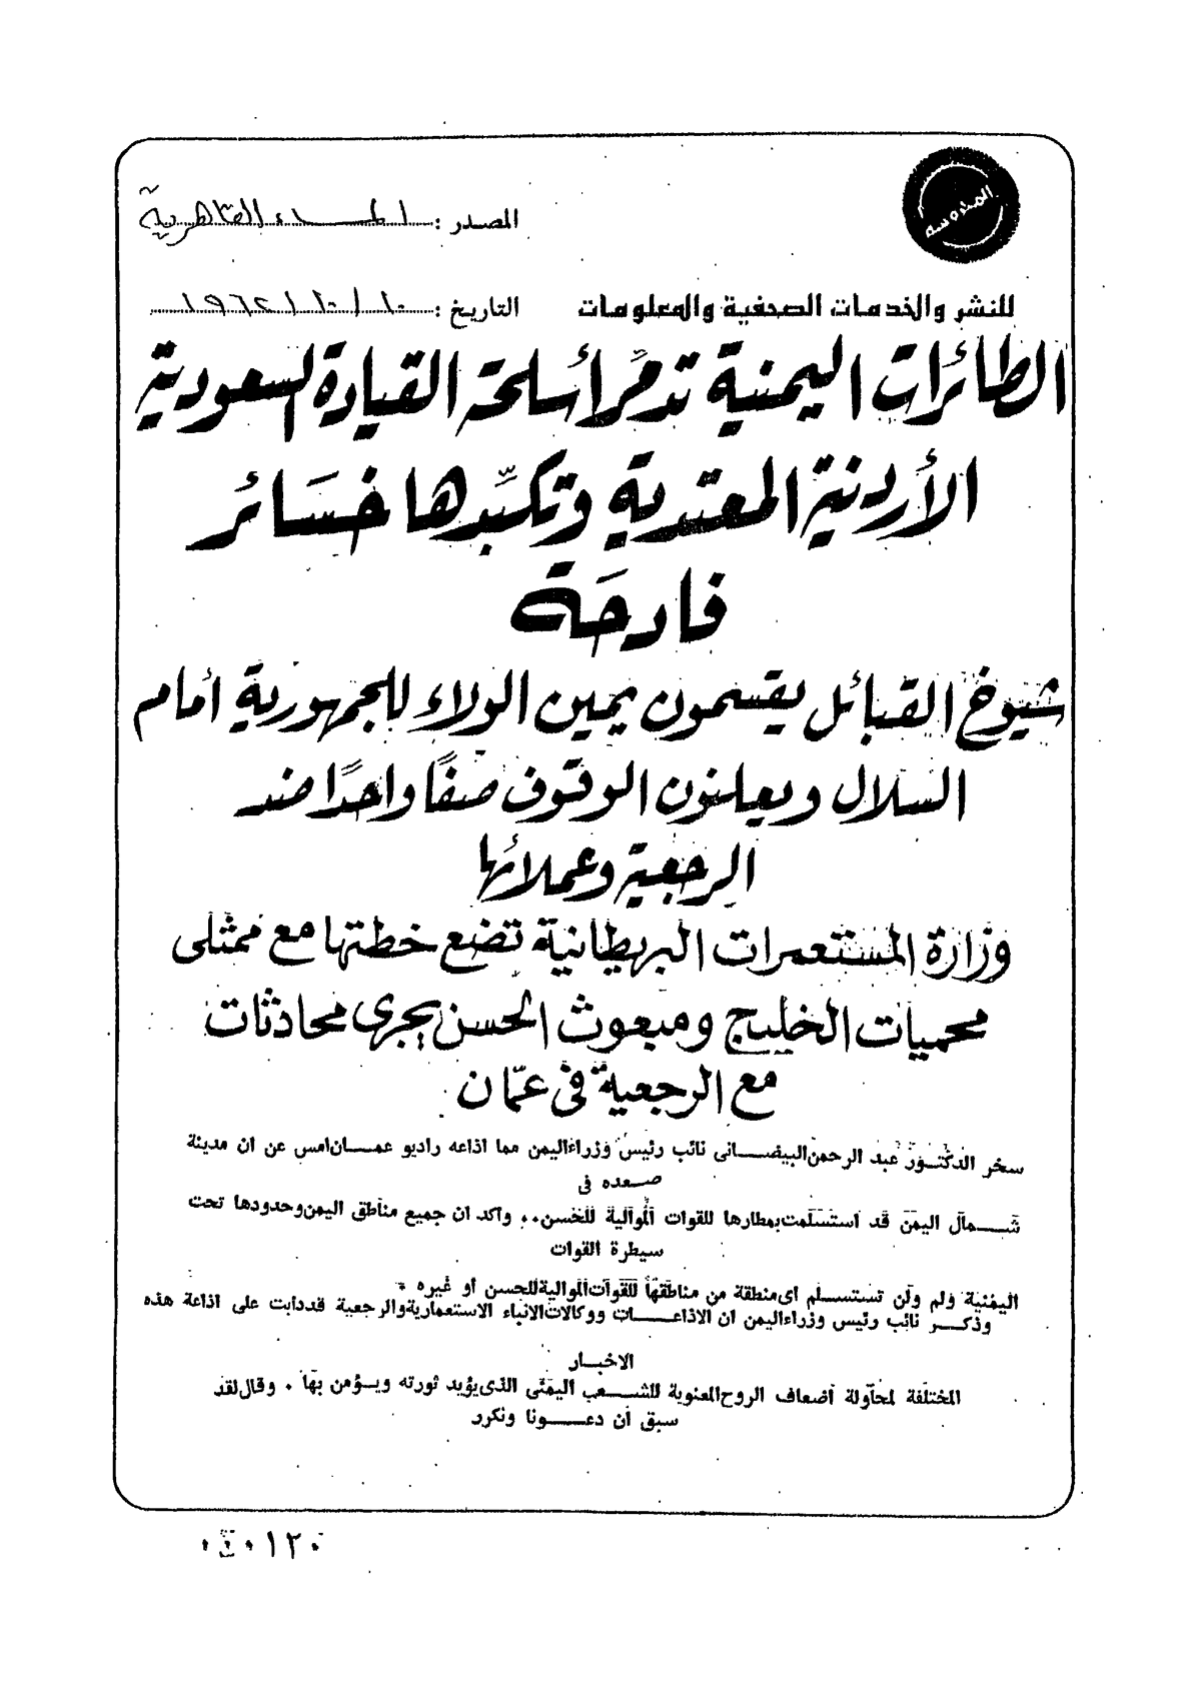 المصدر : المساء القاهرية
للنشر والخدمات الصحفية والمعلومات
التاريخ : ١٠/١٠/١٩٦٢
الطائرات اليمنية تدمر أسلحة القيادة السعودية
الأردنية المعتدية وتكبّدها خسَائر
فادحَة
شيوخ القبائل يقسمون يمين الولاء للجمهورية أمام
السلال ويعلنون الوقوف صفًا واحدًا ضد
الرجعية وعملائها
وزارة المستعمرات البريطانية تضع خطتها مع ممثلى
محميات الخليج ومبعوث الحسن يجرى محادثات
مع الرجعية فى عمّان
سخر الدكتور عبد الرحمن البيضانى نائب رئيس وزراء اليمن مما اذاعه راديو عمان امس عن ان مدينة
صعده فى
شمال اليمن قد استسلمت بمطارها للقوات الموالية للحسن .. واكد ان جميع مناطق اليمن وحدودها تحت
سيطرة القوات
اليمنية ولم ولن تستسلم اى منطقة من مناطقها للقوات الموالية للحسن او غيره *
وذكر نائب رئيس وزراء اليمن ان الاذاعات ووكالات الانباء الاستعمارية والرجعية قد دابت على اذاعة هذه
الاخبار
المختلفة لمحاولة اضعاف الروح المعنوية للشعب اليمنى الذى يؤيد ثورته ويؤمن بها . وقال لقد
سبق ان دعونا ونكرر